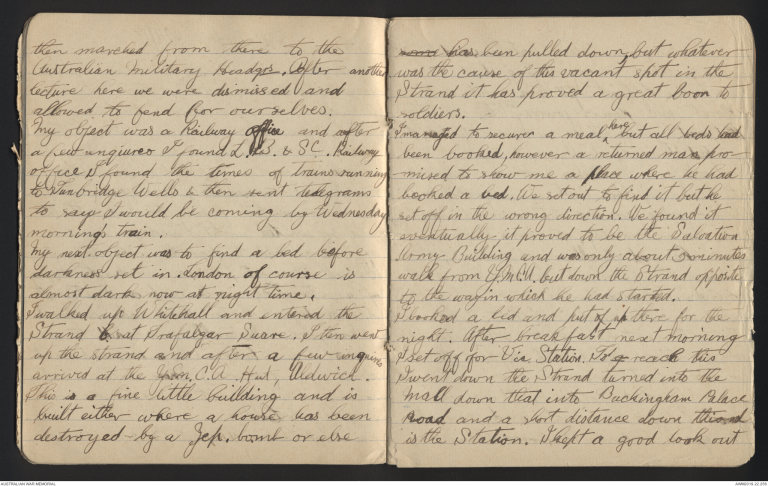 then marched from there to the
Australian Military Headqrs. After another
lecture here we were dismissed and
allowed to fend for ourselves.
My object was a Railway office and after
a few unquires I found L.B. & S C. Railway
office I found the times of trains running
to Tunbridge Wells & then sent telegrams
to say I would be coming by Wednesday
morning's train.
My next object was to find a bed before
darkness set in. London of course is
almost dark now at night time.
I walked up Whitehall and entered the
Strand at Trafalgar Suare. I then went
up the strand and after a few unquires
arrived at the Y.M.C.A Hut, Aldwich.
This is a fine little building and is
built either where a house has been
destroyed by a Zep. bomb or else
some has been pulled down, but whatever
was the cause of this vacant spot in the
Strand it has proved a great boon to
soldiers.
I managed to secure a meal here but all beds had
been booked, however a returned man pro-
mised to show me a place where he had
booked a bed. We set out to find it but he
set off in the wrong direction. We found it
eventually it proved to be the Salvation
Army Building and was only about 3 minutes
walk from Y.M.C.A. but down the Strand opposite
to the way in which he had started.
I booked a bed and put up there for the
night. After breakfast next morning
I set off for Vic. Station. To reach this
I went down the Strand turned into the
Mall down that into Buckingham Palace
Road and a short distance down
is the Station. I kept a good look out
AUSTRALIAN WAR MEMORIAL